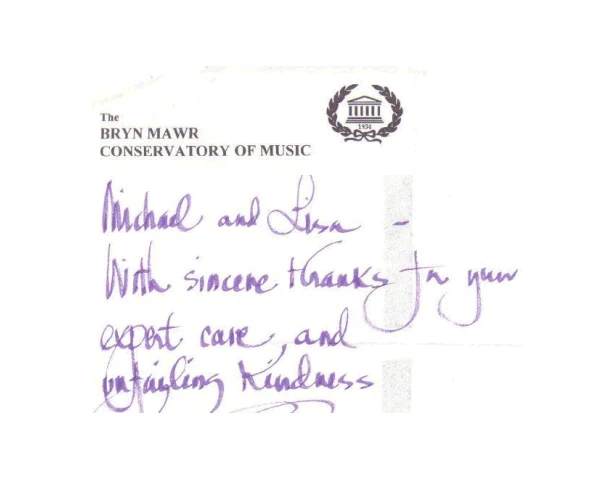 The
BRYN MAWR
CONSERVATORY OF MUSIC
1934
Michael and Lisa -
With sincere thanks for your
expert care, and
unfailing kindness